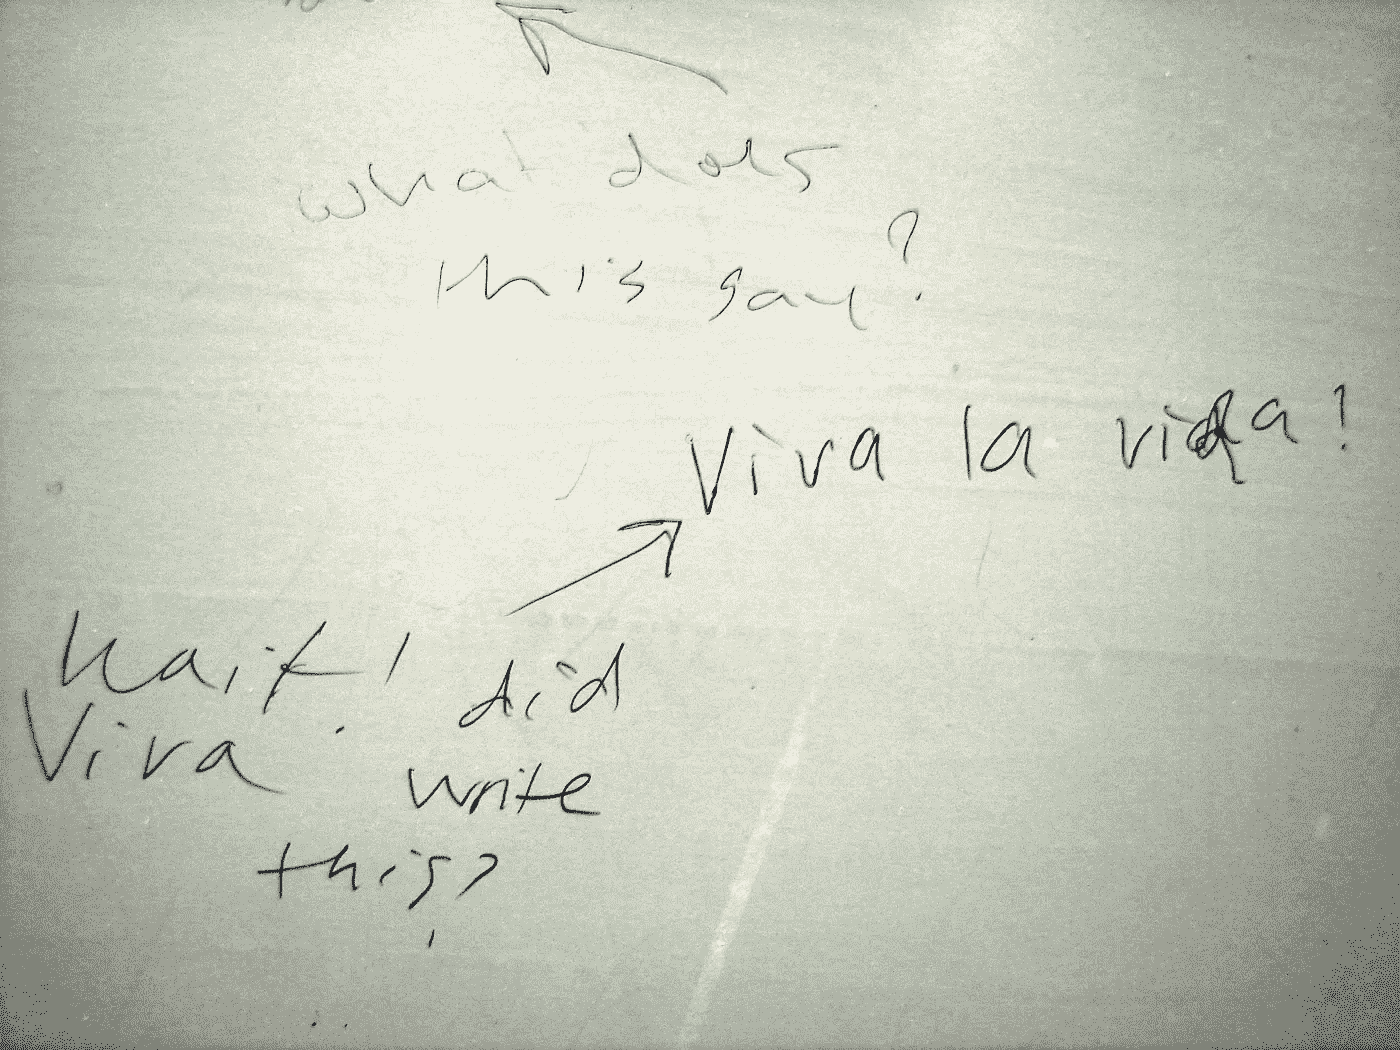 what does
this say?
Viva la vida!
Wait! did
Viva write
this?